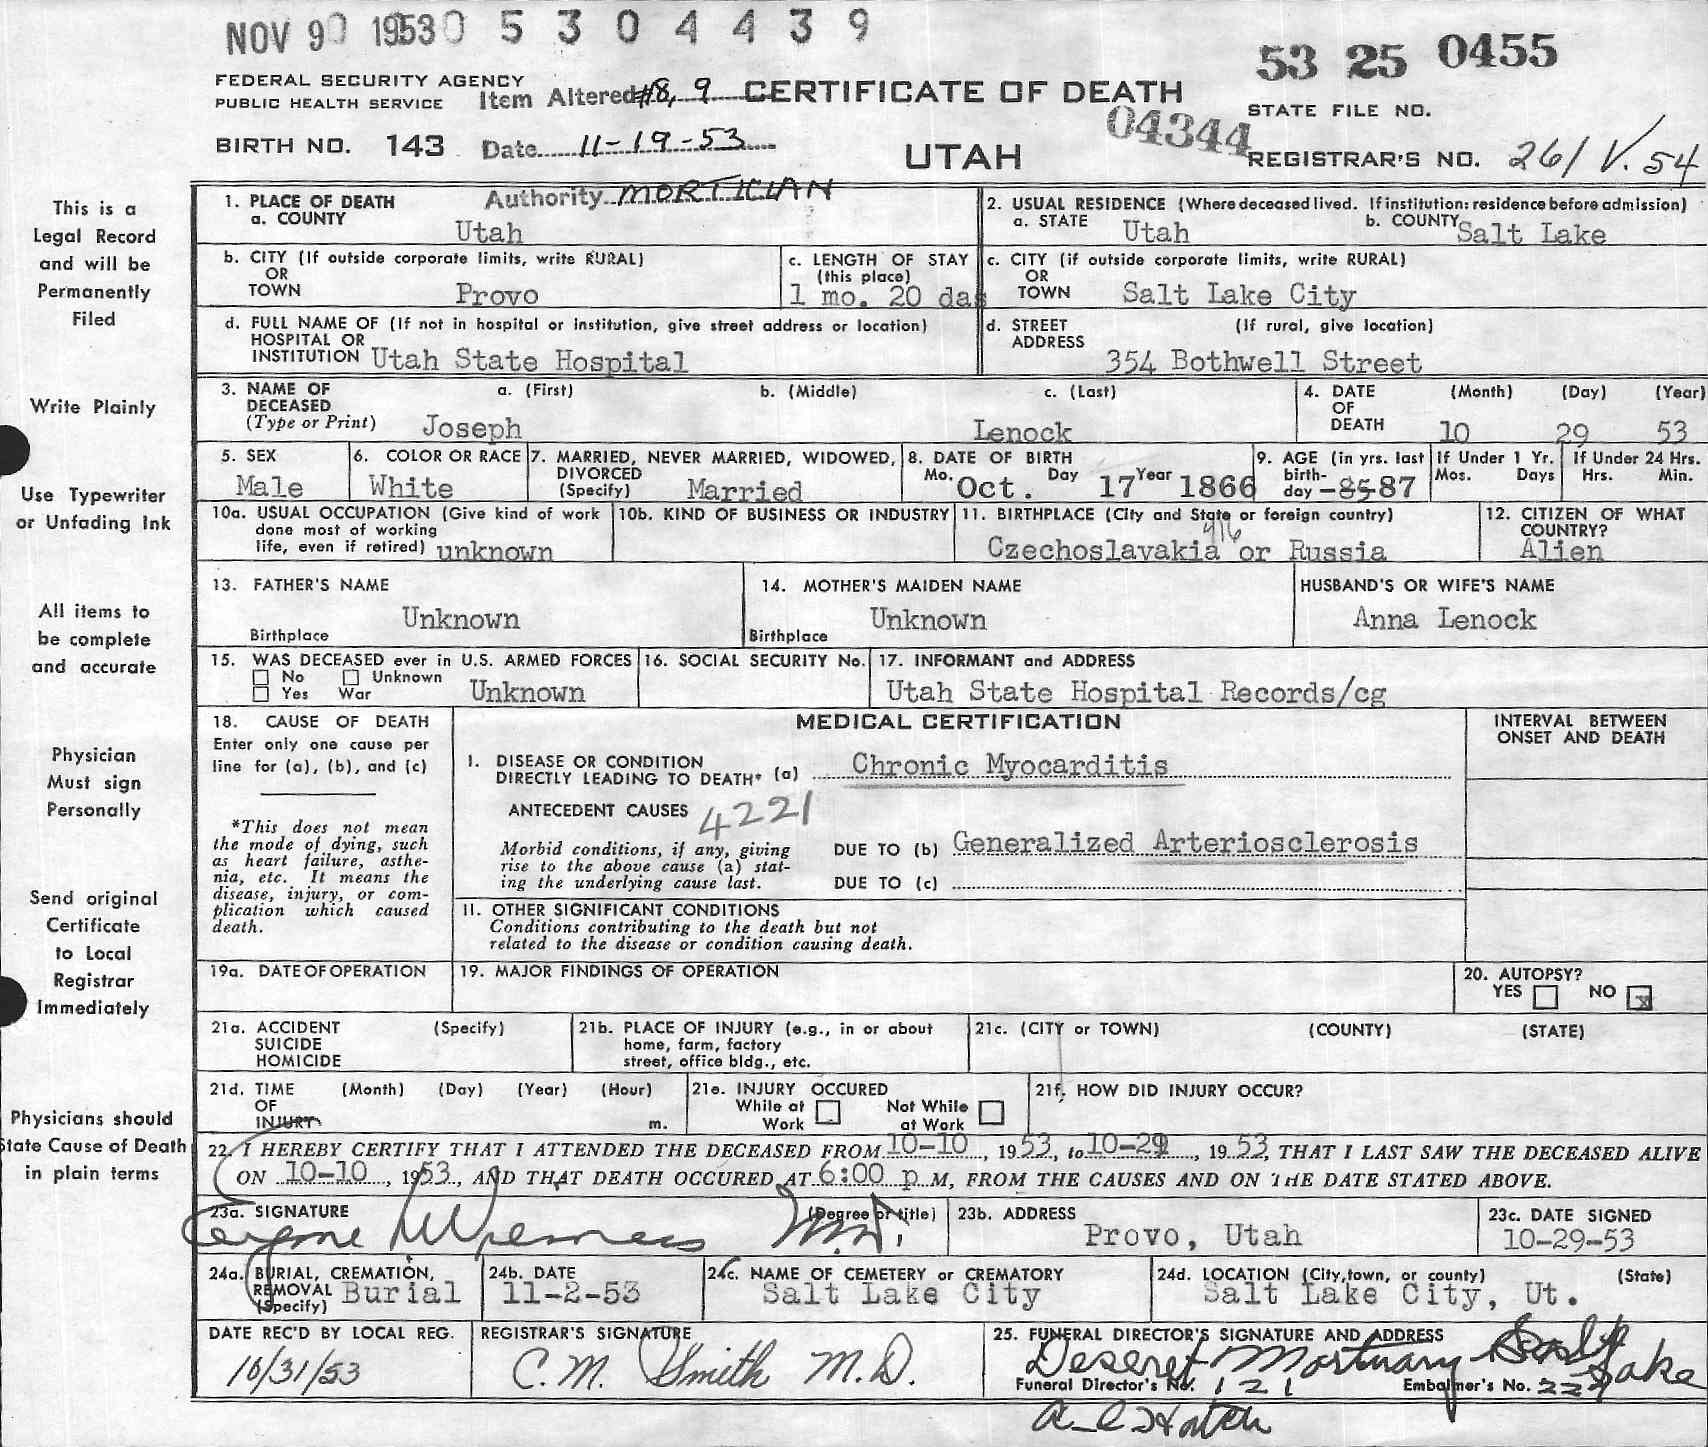 NOV 9 1953 0 5 3 0 4 4 3 9
53 25 0455
FEDERAL SECURITY AGENCY
PUBLIC HEALTH SERVICE Item Altered #8, 9 CERTIFICATE OF DEATH
STATE FILE NO.
04344
BIRTH NO. 143 Date 11-19-53 UTAH REGISTRAR'S NO. 261 V. 54
Authority MORTICIAN
This is a
Legal Record
and will be
Permanently
Filed
Write Plainly
Use Typewriter
or Unfading Ink
All items to
be complete
and accurate
Physician
Must sign
Personally
Send original
Certificate
to Local
Registrar
Immediately
Physicians should
State Cause of Death
in plain terms
1. PLACE OF DEATH
a. COUNTY Utah
2. USUAL RESIDENCE (Where deceased lived. If institution: residence before admission)
a. STATE Utah b. COUNTY Salt Lake
b. CITY (If outside corporate limits, write RURAL)
OR
TOWN Provo
c. LENGTH OF STAY
(this place)
1 mo. 20 das
c. CITY (if outside corporate limits, write RURAL)
OR
TOWN Salt Lake City
d. FULL NAME OF (If not in hospital or institution, give street address or location)
HOSPITAL OR
INSTITUTION Utah State Hospital
d. STREET (If rural, give location)
ADDRESS
354 Bothwell Street
3. NAME OF a. (First) b. (Middle) c. (Last)
DECEASED
(Type or Print) Joseph Lenock
4. DATE (Month) (Day) (Year)
OF
DEATH 10 29 53
5. SEX
Male
6. COLOR OR RACE
White
7. MARRIED, NEVER MARRIED, WIDOWED,
DIVORCED
(Specify) Married
8. DATE OF BIRTH
Mo. Oct. Day 17 Year 1866
9. AGE (in yrs. last
birth-
day 85 87
If Under 1 Yr.
Mos. Days
If Under 24 Hrs.
Hrs. Min.
10a. USUAL OCCUPATION (Give kind of work
done most of working
life, even if retired) unknown
10b. KIND OF BUSINESS OR INDUSTRY
11. BIRTHPLACE (City and State or foreign country)
Czechoslavakia or Russia
12. CITIZEN OF WHAT
COUNTRY?
Alien
13. FATHER'S NAME
Unknown
Birthplace
14. MOTHER'S MAIDEN NAME
Unknown
Birthplace
HUSBAND'S OR WIFE'S NAME
Anna Lenock
15. WAS DECEASED ever in U.S. ARMED FORCES
No Unknown
Yes War Unknown
16. SOCIAL SECURITY No.
17. INFORMANT and ADDRESS
Utah State Hospital Records/cg
18. CAUSE OF DEATH
Enter only one cause per
line for (a), (b), and (c)
*This does not mean
the mode of dying, such
as heart failure, asthe-
nia, etc. It means the
disease, injury, or com-
plication which caused
death.
MEDICAL CERTIFICATION
I. DISEASE OR CONDITION
DIRECTLY LEADING TO DEATH* (a) Chronic Myocarditis
ANTECEDENT CAUSES 4221
Morbid conditions, if any, giving
rise to the above cause (a) stat-
ing the underlying cause last.
DUE TO (b) Generalized Arteriosclerosis
DUE TO (c)
II. OTHER SIGNIFICANT CONDITIONS
Conditions contributing to the death but not
related to the disease or condition causing death.
INTERVAL BETWEEN
ONSET AND DEATH
19a. DATE OF OPERATION
19. MAJOR FINDINGS OF OPERATION
20. AUTOPSY?
YES NO x
21a. ACCIDENT (Specify)
SUICIDE
HOMICIDE
21b. PLACE OF INJURY (e.g., in or about
home, farm, factory
street, office bldg., etc.
21c. (CITY or TOWN) (COUNTY) (STATE)
21d. TIME (Month) (Day) (Year) (Hour)
OF
INJURY m.
21e. INJURY OCCURED
While at Work Not While at Work
21f. HOW DID INJURY OCCUR?
22. I HEREBY CERTIFY THAT I ATTENDED THE DECEASED FROM 10-10, 1953, to 10-29, 1953, THAT I LAST SAW THE DECEASED ALIVE
ON 10-10, 1953, AND THAT DEATH OCCURED AT 6:00 p M, FROM THE CAUSES AND ON THE DATE STATED ABOVE.
23a. SIGNATURE (Degree or title)
M.D.
23b. ADDRESS
Provo, Utah
23c. DATE SIGNED
10-29-53
24a. BURIAL, CREMATION,
REMOVAL
(Specify) Burial
24b. DATE
11-2-53
24c. NAME OF CEMETERY or CREMATORY
Salt Lake City
24d. LOCATION (City, town, or county) (State)
Salt Lake City, Ut.
DATE REC'D BY LOCAL REG.
10/31/53
REGISTRAR'S SIGNATURE
C. M. Smith M. D.
25. FUNERAL DIRECTOR'S SIGNATURE AND ADDRESS
Deseret Mortuary Salt Lake
Funeral Director's No. 121 Embalmer's No.